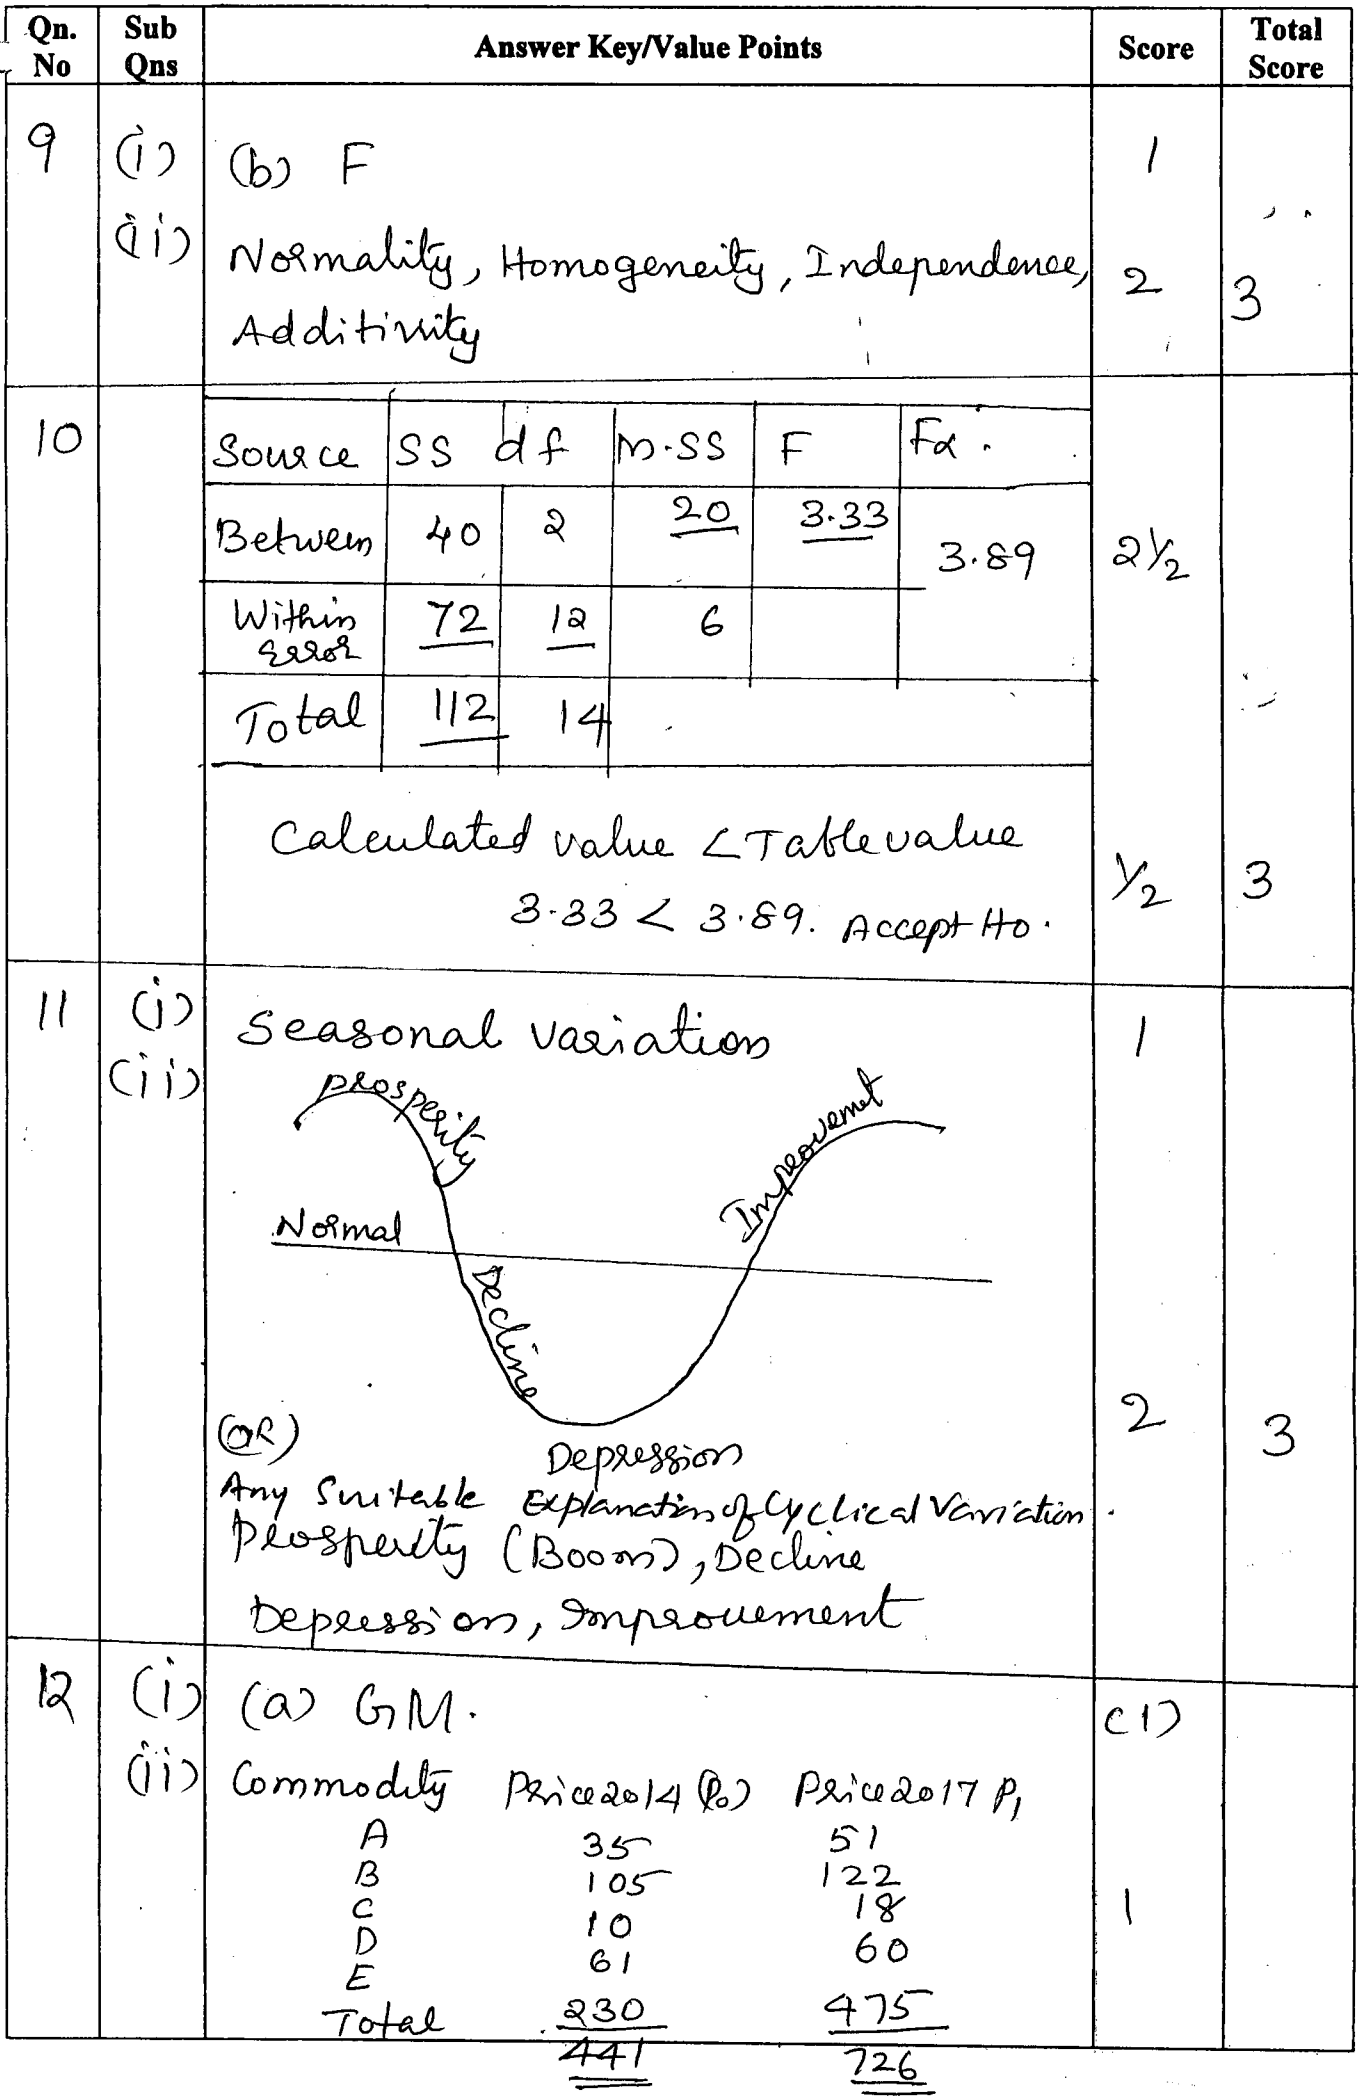 Qn. No Sub Qns Answer Key/Value Points Score Total Score
9 (i) (b) F 1
(ii) Normality, Homogeneity, Independence, 2 3
Additivity
10 Source SS df M.SS F Fα.
Between 40 2 20 3.33 3.89 2½
Within Error 72 12 6
Total 112 14
Calculated value < Table value
3.33 < 3.89. Accept Ho. ½ 3
11 (i) Seasonal variation 1
(ii) prosperity
Improvemet
Normal
Decline
Depression 2 3
(OR)
Any Suitable Explanation of Cyclical Variation.
Prosperity (Boom), Decline
Depression, Improvement
12 (i) (a) GM. (1)
(ii) Commodity Price 2014 (P₀) Price 2017 P₁
A 35 51
B 105 122
C 10 18 1
D 61 60
E 230 475
Total 441 726